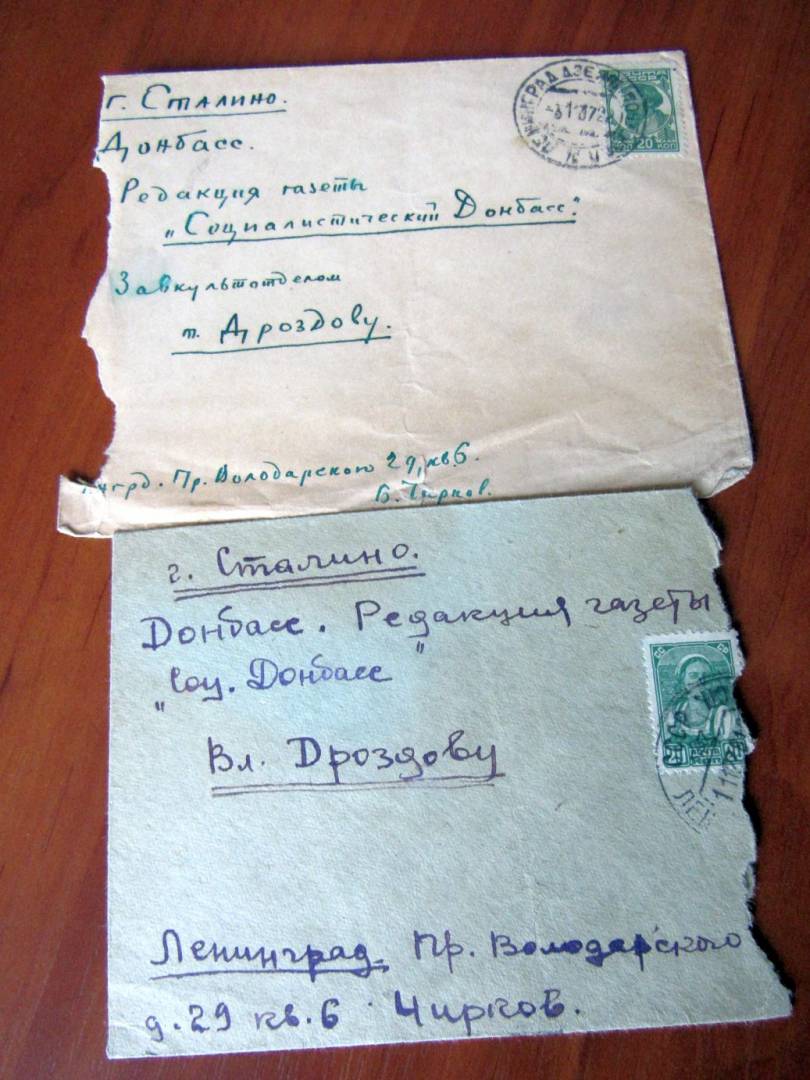 г. Сталино.
Донбасс.
Редакция газеты
„Социалистический Донбасс".
Завкультотделом
т. Дроздову.
Пр. Володарского 29, кв. 6.
Б. Чирков.
ЛЕНИНГРАД
20
КОП
г. Сталино.
Донбасс. Редакция газеты
„Соц. Донбасс"
Вл. Дроздову
20
ЛЕН
Ленинград, Пр. Володарского
д. 29 кв. 6 Чирков.